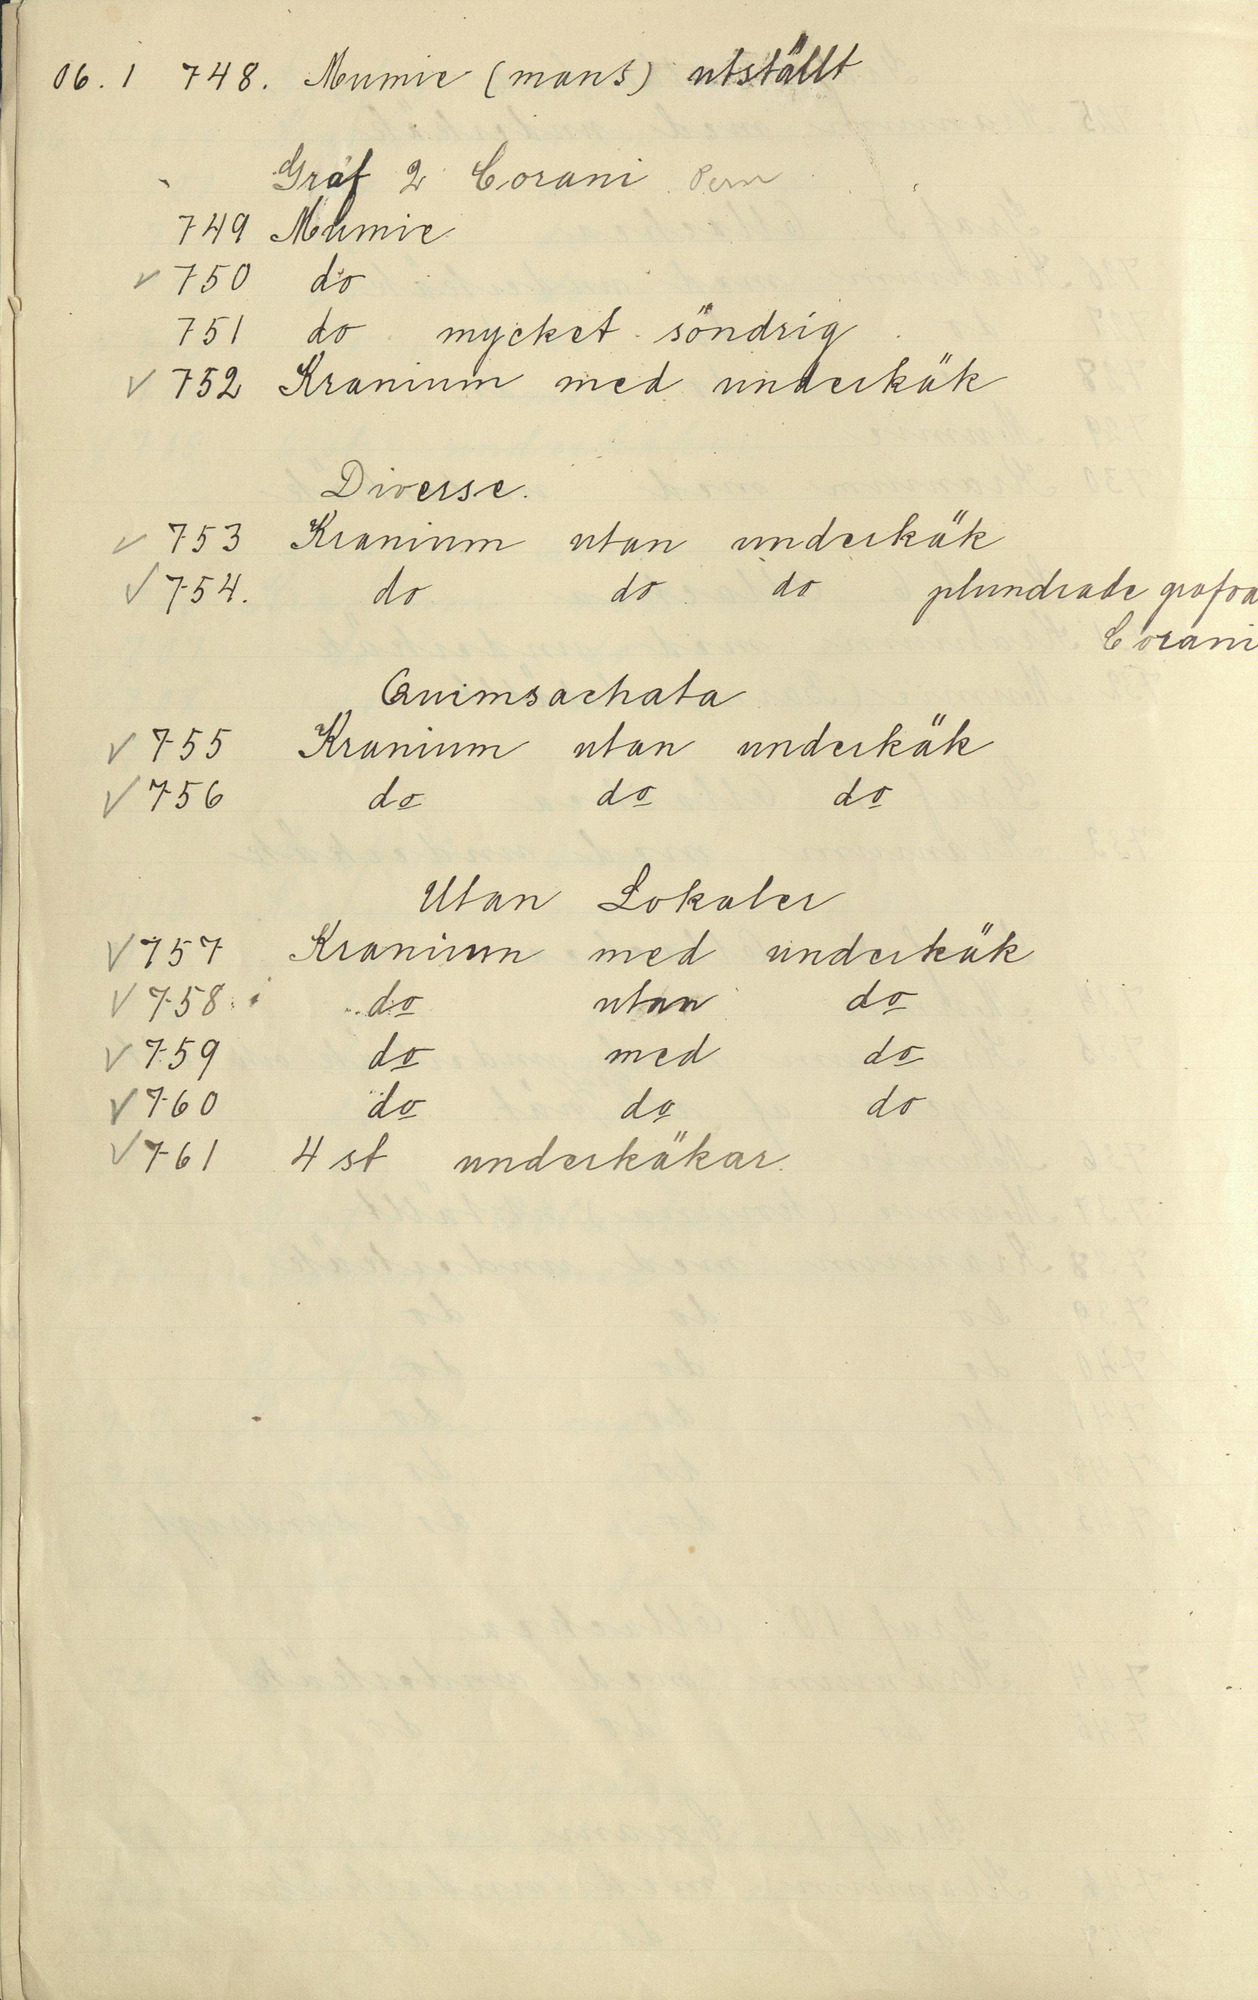 06. 1 748. Mumie (mans) utställt
Graf 2 Corani Peru
749 Mumie
✓ 750 do
751 do mycket söndrig
✓ 752 Kranium med underkäk
Diverse.
✓ 753 Kranium utan underkäk
✓ 754. do do do plundrade grafva
Corani
Quimsachata
✓ 755 Kranium utan underkäk
✓ 756 do do do
Utan Lokaler
✓ 757 Kranium med underkäk
✓ 758 do utan do
✓ 759 do med do
✓ 760 do do do
✓ 761 4 st underkäkar.